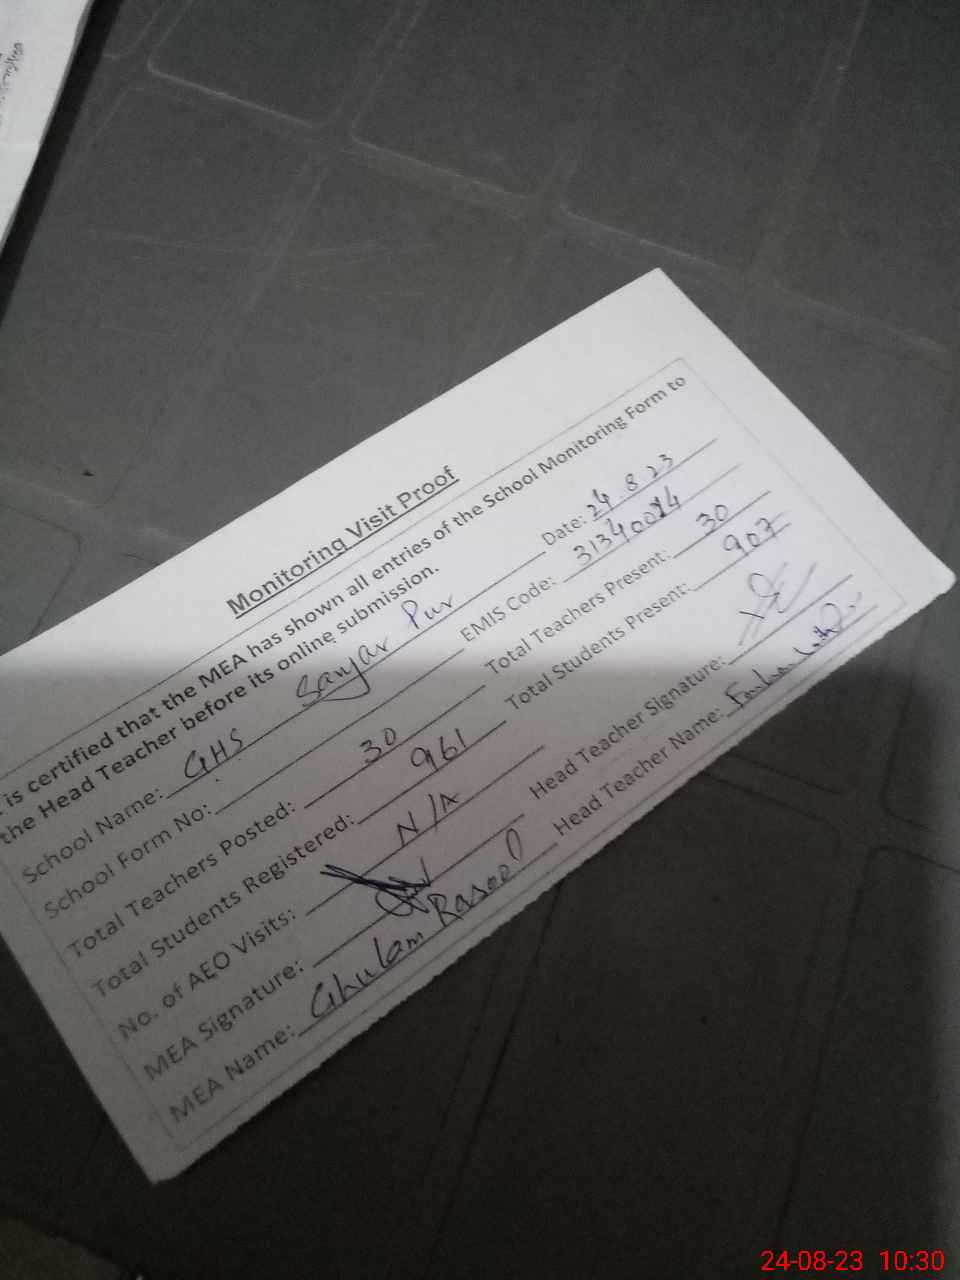 Monitoring Visit Proof
is certified that the MEA has shown all entries of the School Monitoring Form to
the Head Teacher before its online submission.
School Name: GHS Sanjar Pur Date: 24.8.23
School Form No: EMIS Code:
Total Teachers Posted: 30 Total Teachers Present: 30
Total Students Registered: 961 Total Students Present: 907
No. of AEO Visits: N/A
MEA Signature: Head Teacher Signature:
MEA Name: Ghulam Rasool Head Teacher Name:
24-08-23 10:30